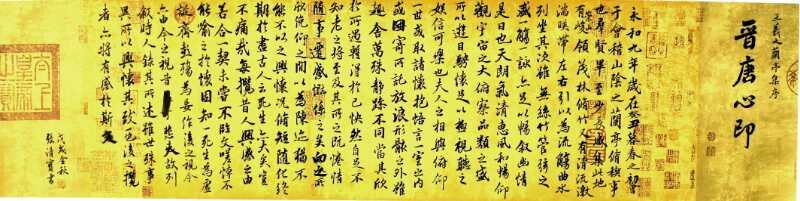 王羲之蘭亭集序
晉唐心印
永和九年歲在癸丑暮春之初會
于會稽山陰之蘭亭脩禊事
也群賢畢至少長咸集此地
有峻領茂林脩竹又有清流激
湍暎帶左右引以為流觴曲水
列坐其次雖無絲竹管弦之
盛一觴一詠亦足以暢叙幽情
是日也天朗氣清惠風和暢仰
觀宇宙之大俯察品類之盛
所以遊目騁懷足以極視聽之
娛信可樂也夫人之相與俯仰
一世或取諸懷抱悟言一室之內
或因寄所託放浪形骸之外雖
趣舍萬殊靜躁不同當其欣
於所遇暫得於己快然自足不
知老之將至及其所之既惓情
隨事遷感慨係之矣向之所
欣俛仰之間以為陳迹猶不
能不以之興懷況脩短隨化終
期於盡古人云死生亦大矣豈
不痛哉每攬昔人興感之由
若合一契未嘗不臨文嗟悼不
能喻之於懷固知一死生為虛
誕齊彭殤為妄作後之視今
亦由今之視昔悲夫故列
敘時人錄其所述雖世殊事
異所以興懷其致一也後之攬
者亦將有感於斯文
戊戌金秋
張清書